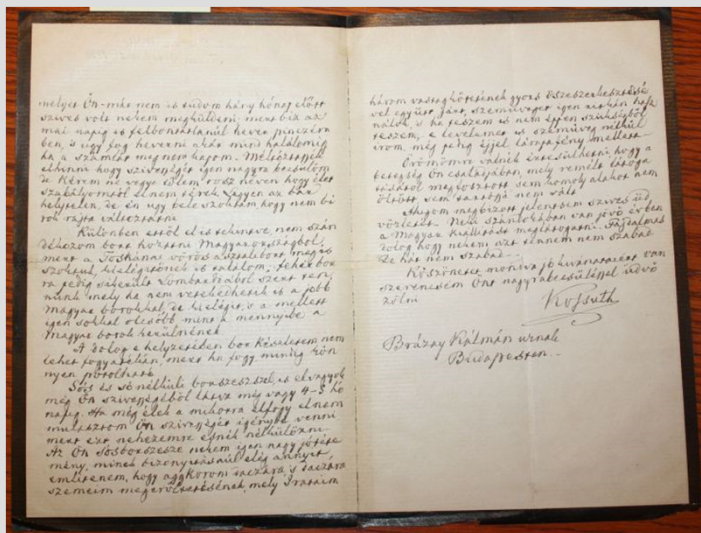 melyet Ön már nem is tudom hány hónap előtt
szives volt nekem megküldeni; mert biz az
mai napig is felbontatlanúl hever pinczém
ben, s úgy fog heverni akár mind halálomig
ha a számlát meg nem kapom. Méltóztassék
elhinni hogy szivességét igen nagyra becsülöm
de kérem ne vegye tőlem rosz néven hogy élet
szabályomtól el nem térek. Legyen az bár
helytelen, de én úgy bele szoktam hogy nem bi
rok rajta változtatni.
Különben ettől el is tekintve, nem szán
dékozom bort hozatni Magyarországból,
mert a Toskánai vörös asztali bort megis
szoktuk, kielégitőnek is találom; fehér bor
ra pedig sikerült Lombardiából szert ten
nünk mely ha nem vetekedhetik is a jobb
magyar borokkal, de kielégit, s a mellett
igen sokkal olcsóbb mint a mennyibe a
magyar borok kerülnének.
A dolog e helyzetében bor készletem nem
lehet fogyatékán, mert ha fogy mindig kön
nyen pótolható.
Sós és sónélküli borszeszszel is el vagyok
még Ön szivességéből látva még vagy 4–5 hó
napig. Ha még élek a mikorra elfogy el nem
mulasztom Ön szivességét igénybe venni
mert ezt nehezemre esnék nélkülözni.
Az Ön Sósborszesze nekem igen nagy jótéte
mény, minek bizonyitásáúl elég annyit
emlitenem, hogy agg korom daczára, s daczára
szemeim megerőltetésének, mely Irataim
három vastag kötetének gyors összeszerkesztésé
vel együtt járt, szemüveget igen ritkán hasz
nálok, s ha teszem is nem éppen szükségből
teszem, e levelemet is szemüveg nélkül
irom, még pedig éjjel lámpafény mellett.
Örömömre válnék értesülhetni hogy a
betegség Ön családjában, mely remélte látoga
tásától megfosztott sem komoly alakot nem
öltött sem tartóssá nem vált.
Hugom megbizott jelentsem szives üd
vözletét. Nem szándokában van jövő évben
a Magyar kiállitást meglátogatni. Fájdalmas
dolog hogy nekem ezt tennem nem szabad.
De hát nem szabad.
Köszönetet mondva jó kivánataiért van
szerencsém Önt nagyrabecsüléssel üdvö
zölni
Kossuth
Brázay Kálmán urnak
Budapesten.